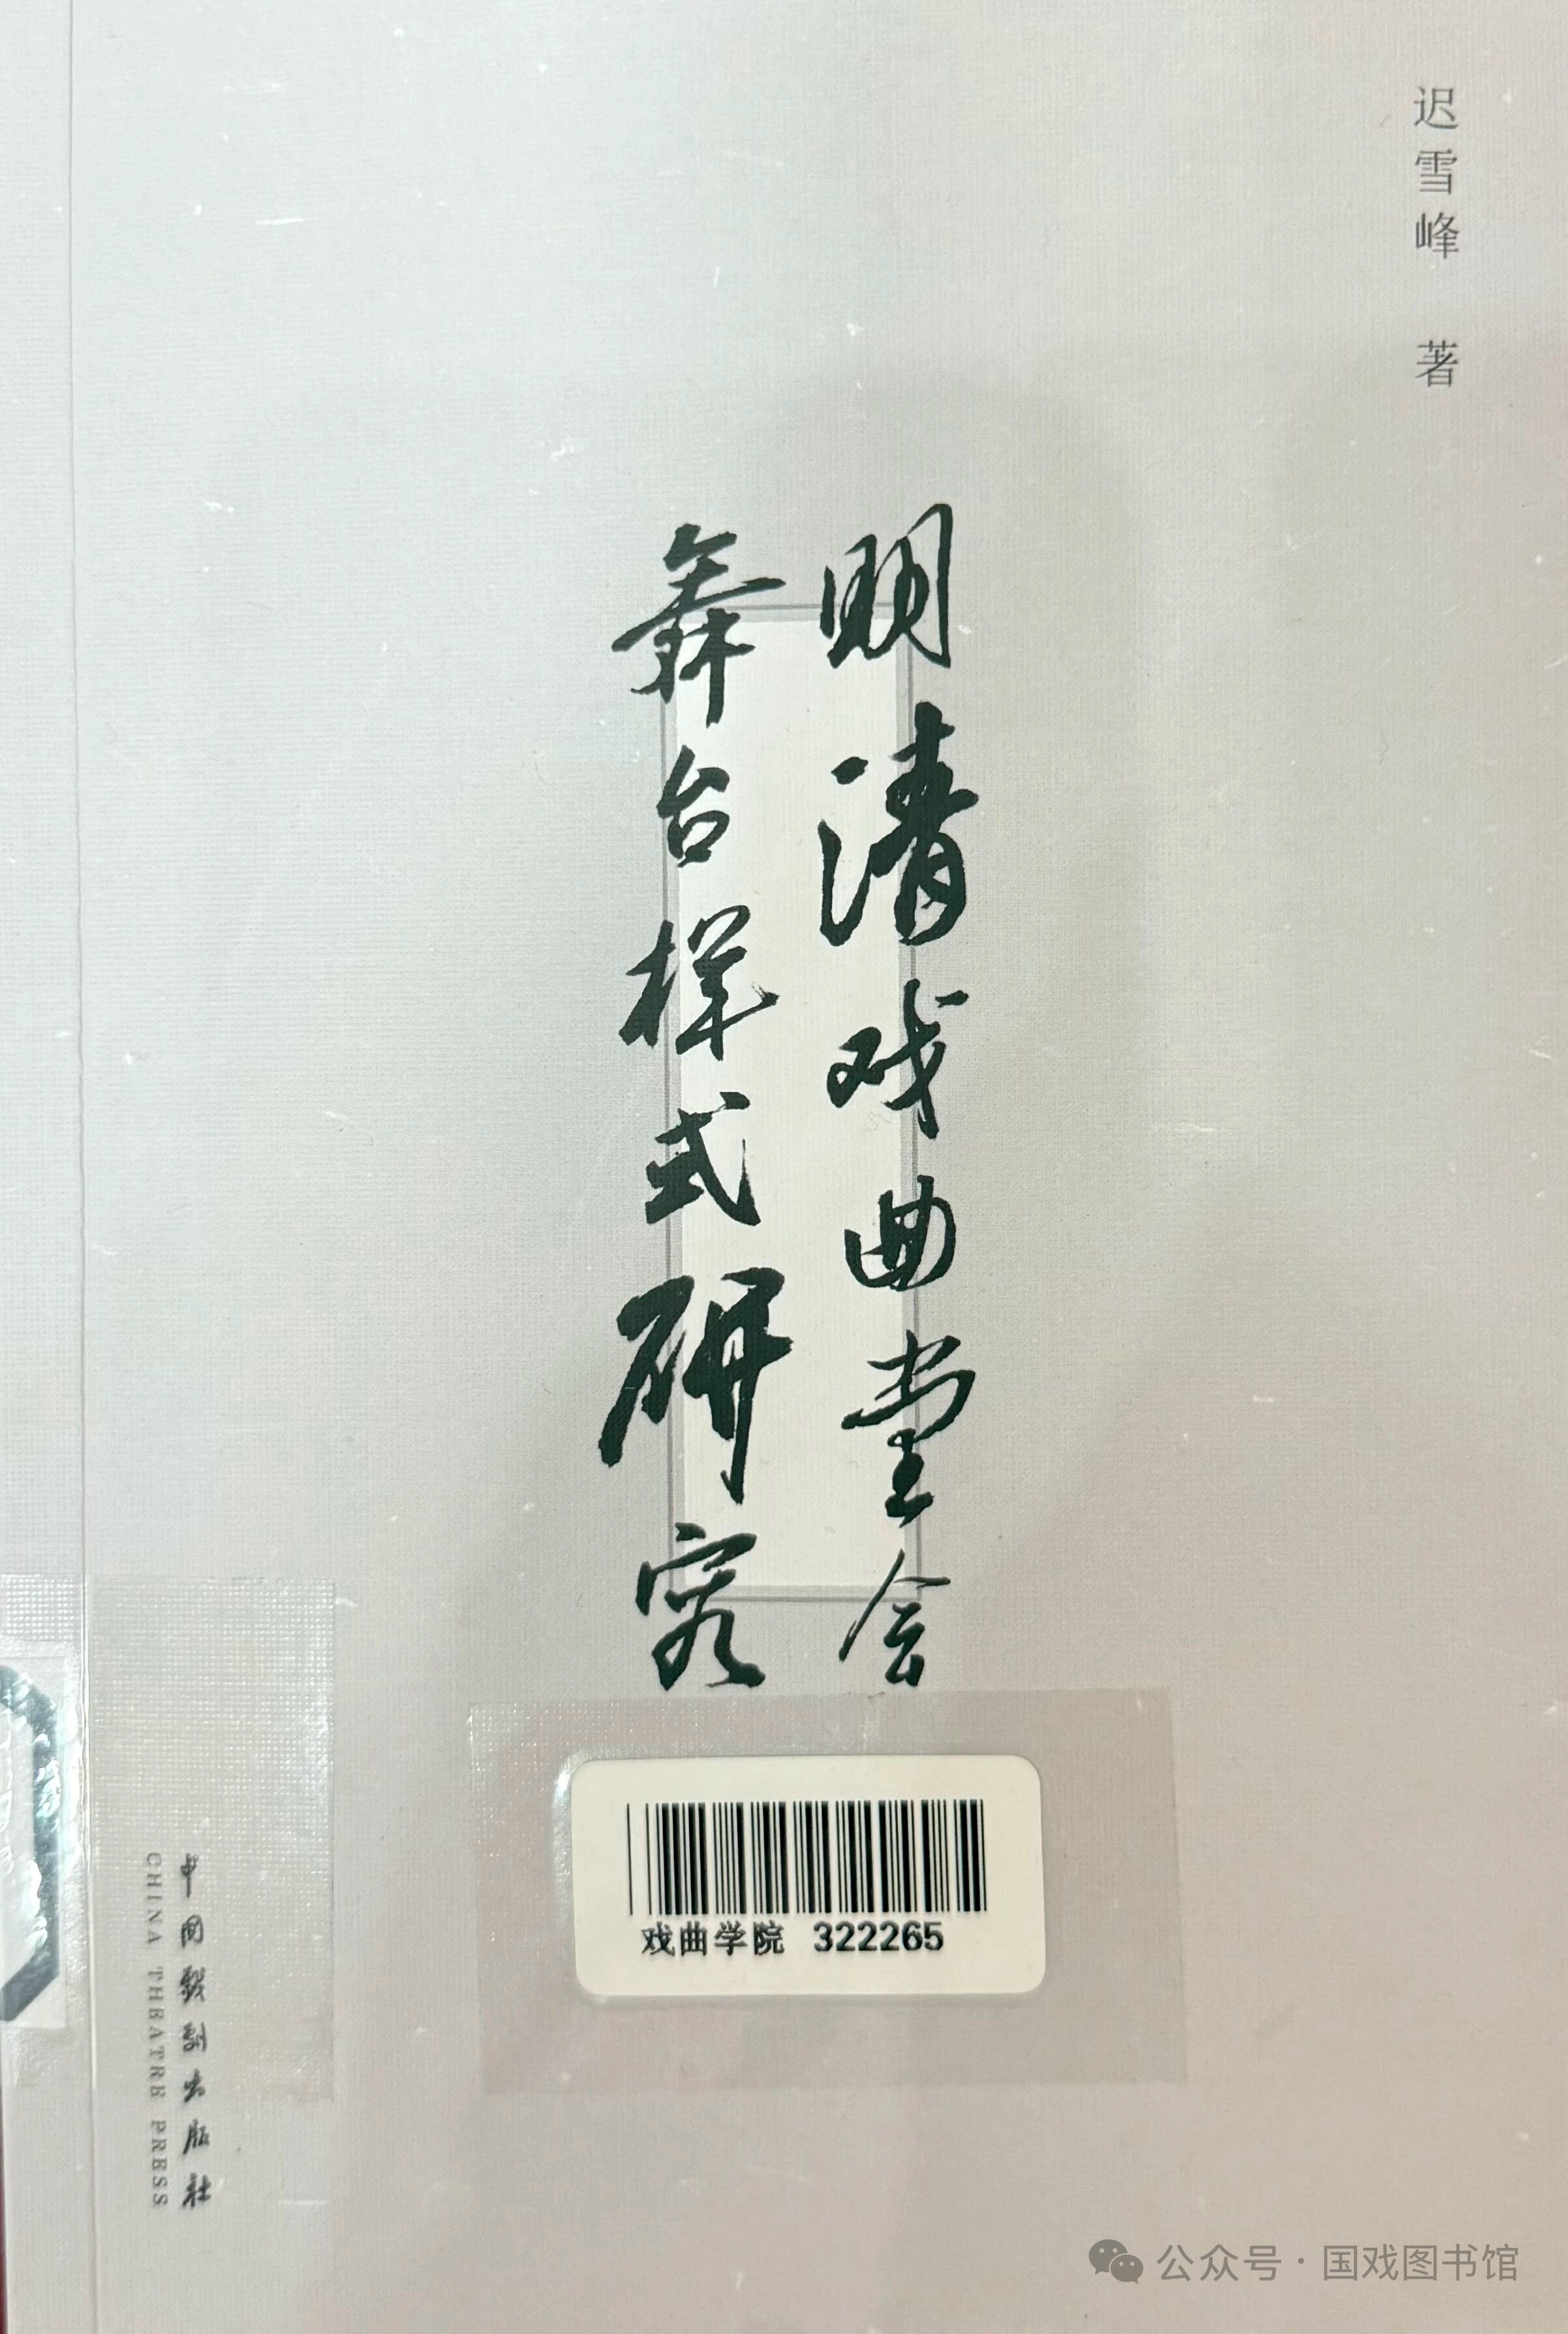 迟雪峰 著
明清戏曲堂会
舞台样式研究
戏曲学院 322265
中国戏剧出版社
CHINA THEATRE PRESS
公众号·国戏图书馆